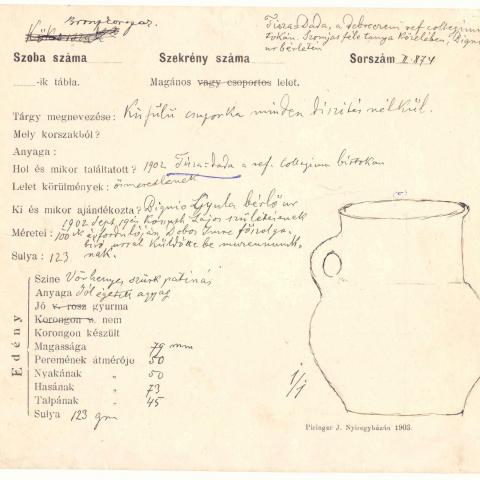 Bronzkorszak.
Tiszadada, a debreceni ref collegium
birtokán. Szomjas féle tanya közelében, Dignio
úr bérleten
Szoba száma Szekrény száma Sorszám II. 874
-ik tábla. Magános vagy csoportos lelet.
Tárgy megnevezése: Kisfülű csuporka minden díszítés nélkül.
Mely korszakból?
Anyaga:
Hol és mikor találtatott? 1902 Tisza-Dada a ref. collegium birtokán
Lelet körülmények: ösmeretlenek
Ki és mikor ajándékozta? Dignio Gyula bérlő úr
1902 Sept 19én Kossuth Lajos születésének
Méretei: 100ik évfordulóján, Dobos Imre főszolga-
bíró úrral küldötte be múzeumunk-
Sulya: 123 nak.
Edény
Szine Vörhenyes, szürk patinás
Anyaga Jól égetett agyag
Jó v. rosz gyurma
Korongon v. nem
Korongon készült
Magassága 79 mm
Peremének átmérője 50
Nyakának " 50
Hasának " 73
Talpának " 45
Sulya 123 gm
1/1
Piringer J. Nyiregyházán 1903.